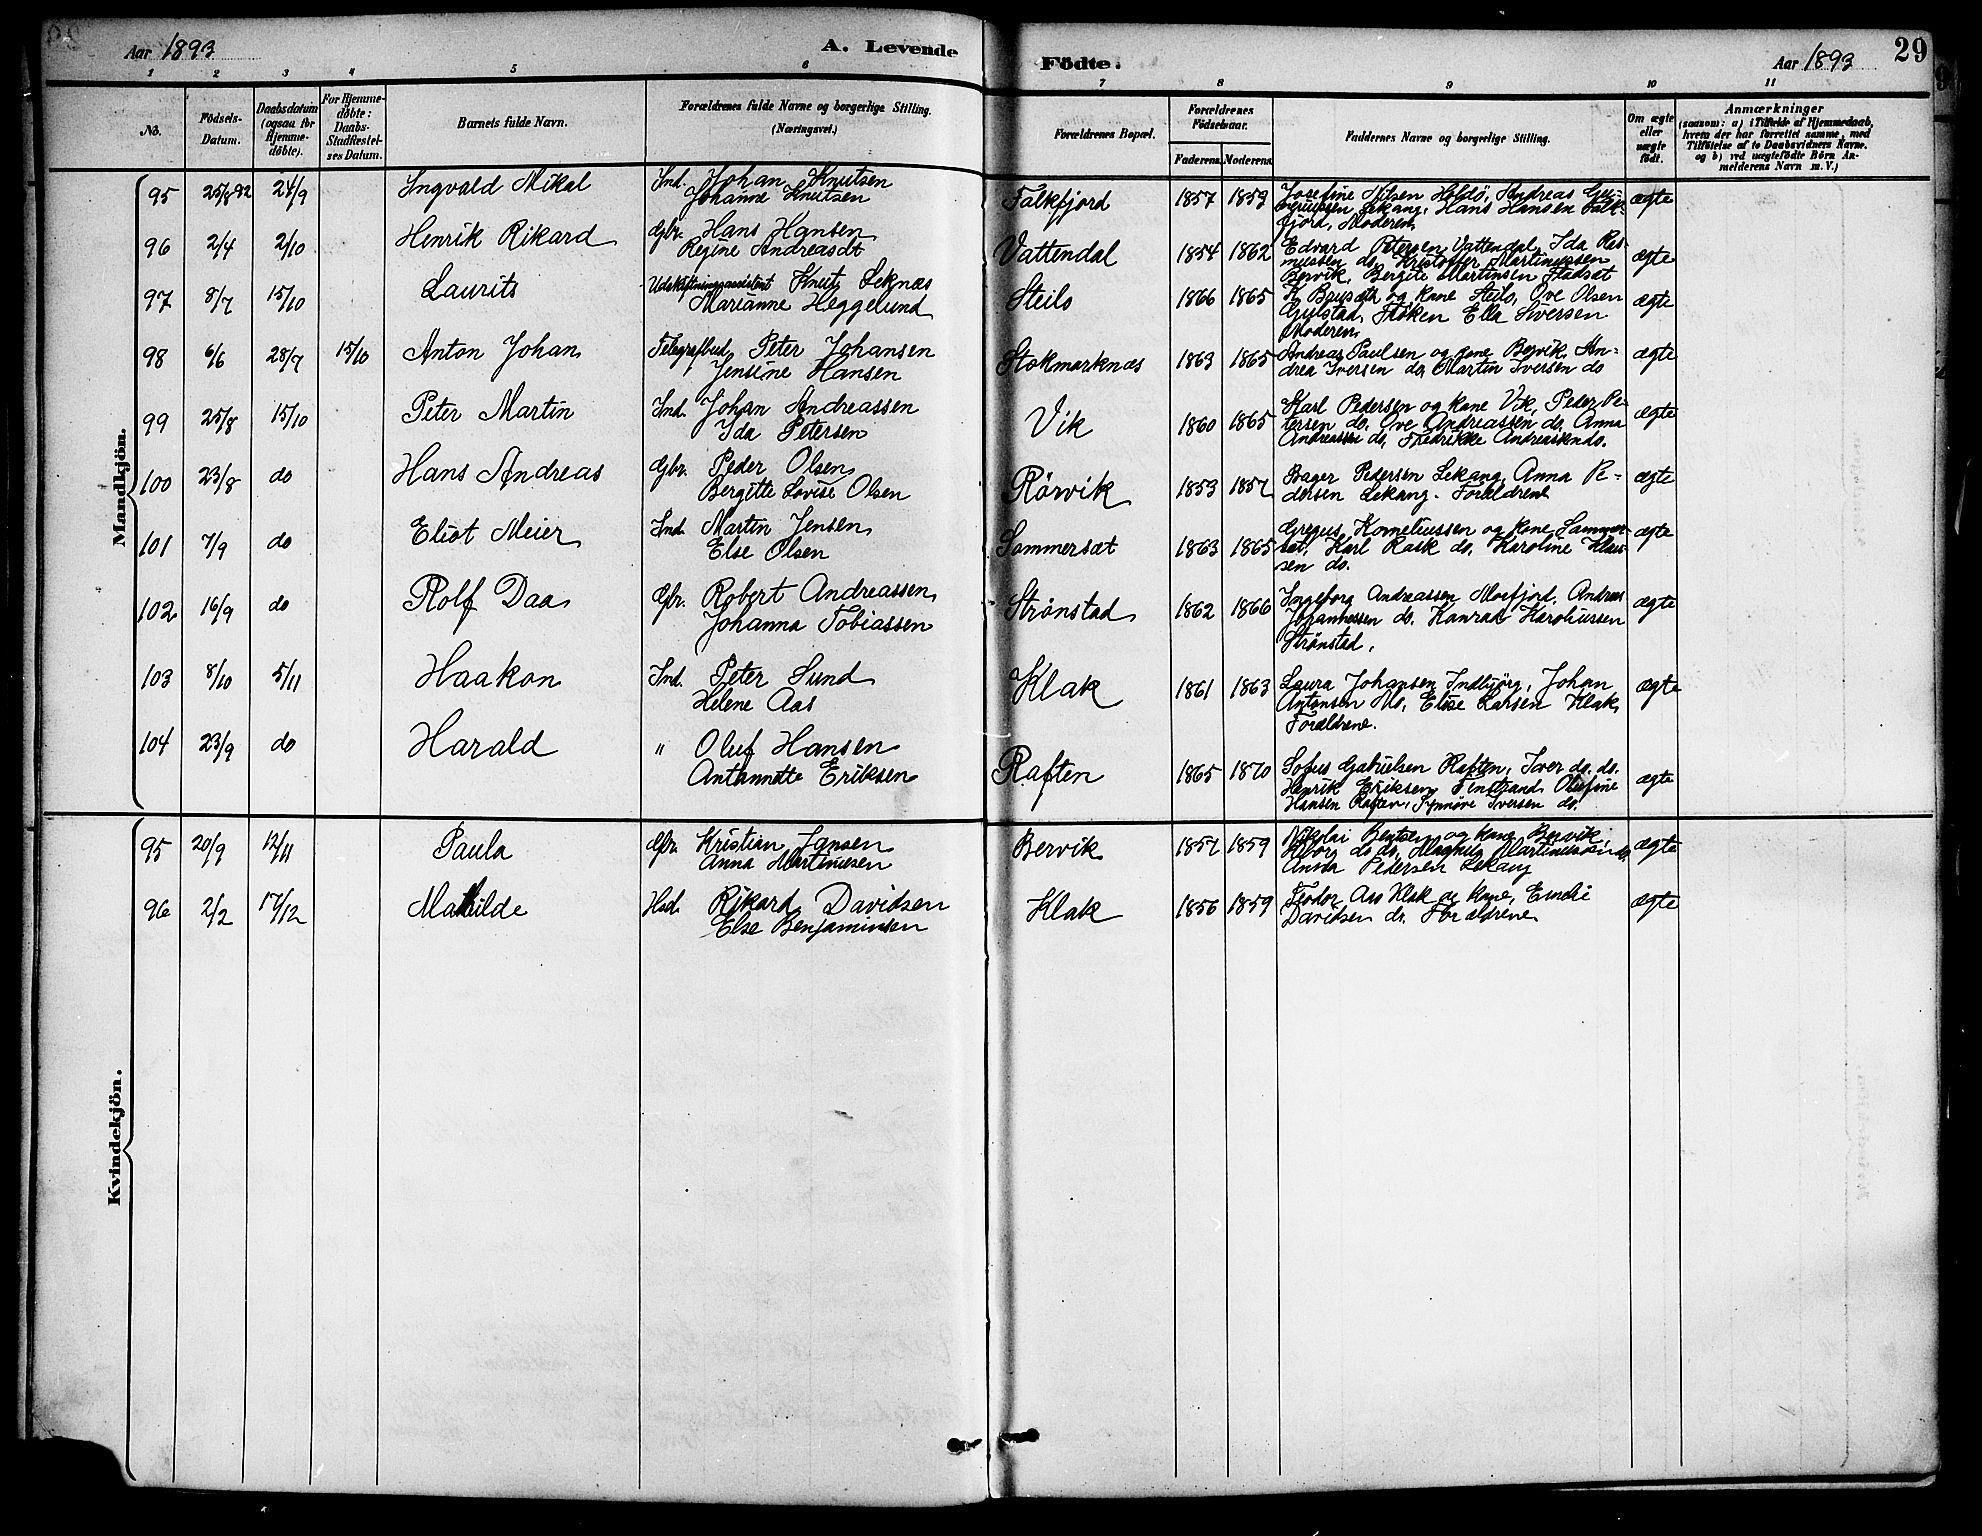 Aar 1893
A. Levende
Födte.
Aar 1893
29
1 2 3 4 5 6 7 8 9 10 11
No.
Födsels-Datum.
Daabsdatum (ogsaa for Hjemme-døbte).
For Hjemme-døbte: Daabs-Stadfæstel-ses Datum.
Barnets fulde Navn.
Forældrenes fulde Navne og borgerlige Stilling. (Næringsvei.)
Forældrenes Bopæl.
Forældrenes Födselsaar.
Faderens. Moderens.
Faddernes Navne og borgerlige Stilling.
Om ægte eller uægte født.
Anmærkninger
(saasom: a) i Tilfælde af Hjemmedaab, hvem der har forrettet samme, med Tilföielse af to Daabsvidners Navne. og b) ved uægtefødte Börn Anmelderens Navn m. V.)
Mandkjön.
95 25/8 92 24/9 Ingvald Mikal Ind. Johan Knutsen
Johanne Knutsen
Falkfjord 1857 1859 Josefine Nilsen Holdö, Andreas
Lekang, Hans Hansen Falk-
fjord, Moderen
ægte
96 2/4 2/10 Henrik Rikard Gbr. Hans Hansen
Regine Andreasdt
Vattendal 1854 1862 Edvard Petersen Vattendal, Ida Ras-
mussen do, Kristoffer Martinussen
Bervik, Bergite Martinsen Hadset
ægte
97 8/7 15/10 Laurits Udskiftningsassistent Knut Leknæs
Marianne Heggelund
Steilo 1866 1865 K. og kone Steilo, Ove Olsen
Gulstad, Ella Siversen
Moderen
ægte
98 6/6 28/7 15/10 Anton Johan Telegrafbud Peter Johansen
Jensine Hansen
Stokmarknæs 1863 1865 Andreas Paulsen og kone Bervik, An-
drea Iversen do, Martin Iversen do
ægte
99 25/8 15/10 Peter Martin Ind. Johan Andreassen
Ida Petersen
Vik 1860 1865 Karl Pedersen og kone Vik, Peder Pe-
tersen do, Ove Andreassen do, Anna
Andreassen do, Fredrikke Andreassen do.
ægte
100 23/8 do Hans Andreas Gbr. Peder Olsen
Bergitte Lovise Olsen
Rörvik 1853 1857 Pedersen Lekang, Anna Pe-
dersen Lekang. Forældrene
ægte
101 7/9 do Eliot Meier Ind. Martin Jensen
Else Olsen
Sommersæt 1863 1865 Gregus Korneliussen og kone Sommer-
sæt, Karl Rask do, Karoline Klau-
sen do.
ægte
102 16/9 do Rolf Daa Gbr. Robert Andreassen
Johanna Tobiassen
Strönstad 1862 1866 Ingeborg Andreassen Morfjord, Andreas
Johannessen do, Konrad
Strönstad.
ægte
103 8/10 5/11 Haakon Ind. Peter Sund
Helene Aas
Klak 1861 1863 Laura Johansen Indbjörg, Johan
Antonsen Mo, Elise Larsen Klak,
Forældrene.
ægte
104 23/9 do Harald " Oluf Hansen
Antonette Eriksen
Raften 1865 1870 Sofus Gabrielsen Raften, Iver do. do.
Henrik Eriksen, Olufine
Hansen Raften, Synnöve Iversen do.
ægte
Kvindekjön.
95 20/9 12/11 Paula Gbr. Kristian Jansen
Anna Martinusen
Bervik 1857 1859 Nikolai Bentsen og kone Bervik,
do do, Magnus Martinussen do,
Pedersen Lekang
ægte
96 2/2 17/12 Mathilde Hsd. Rikard Davidsen
Else Benjaminsen
Klak 1856 1859 Teodor Aas Klak og kone, Emelie
Davidsen do. Forældrene
ægte